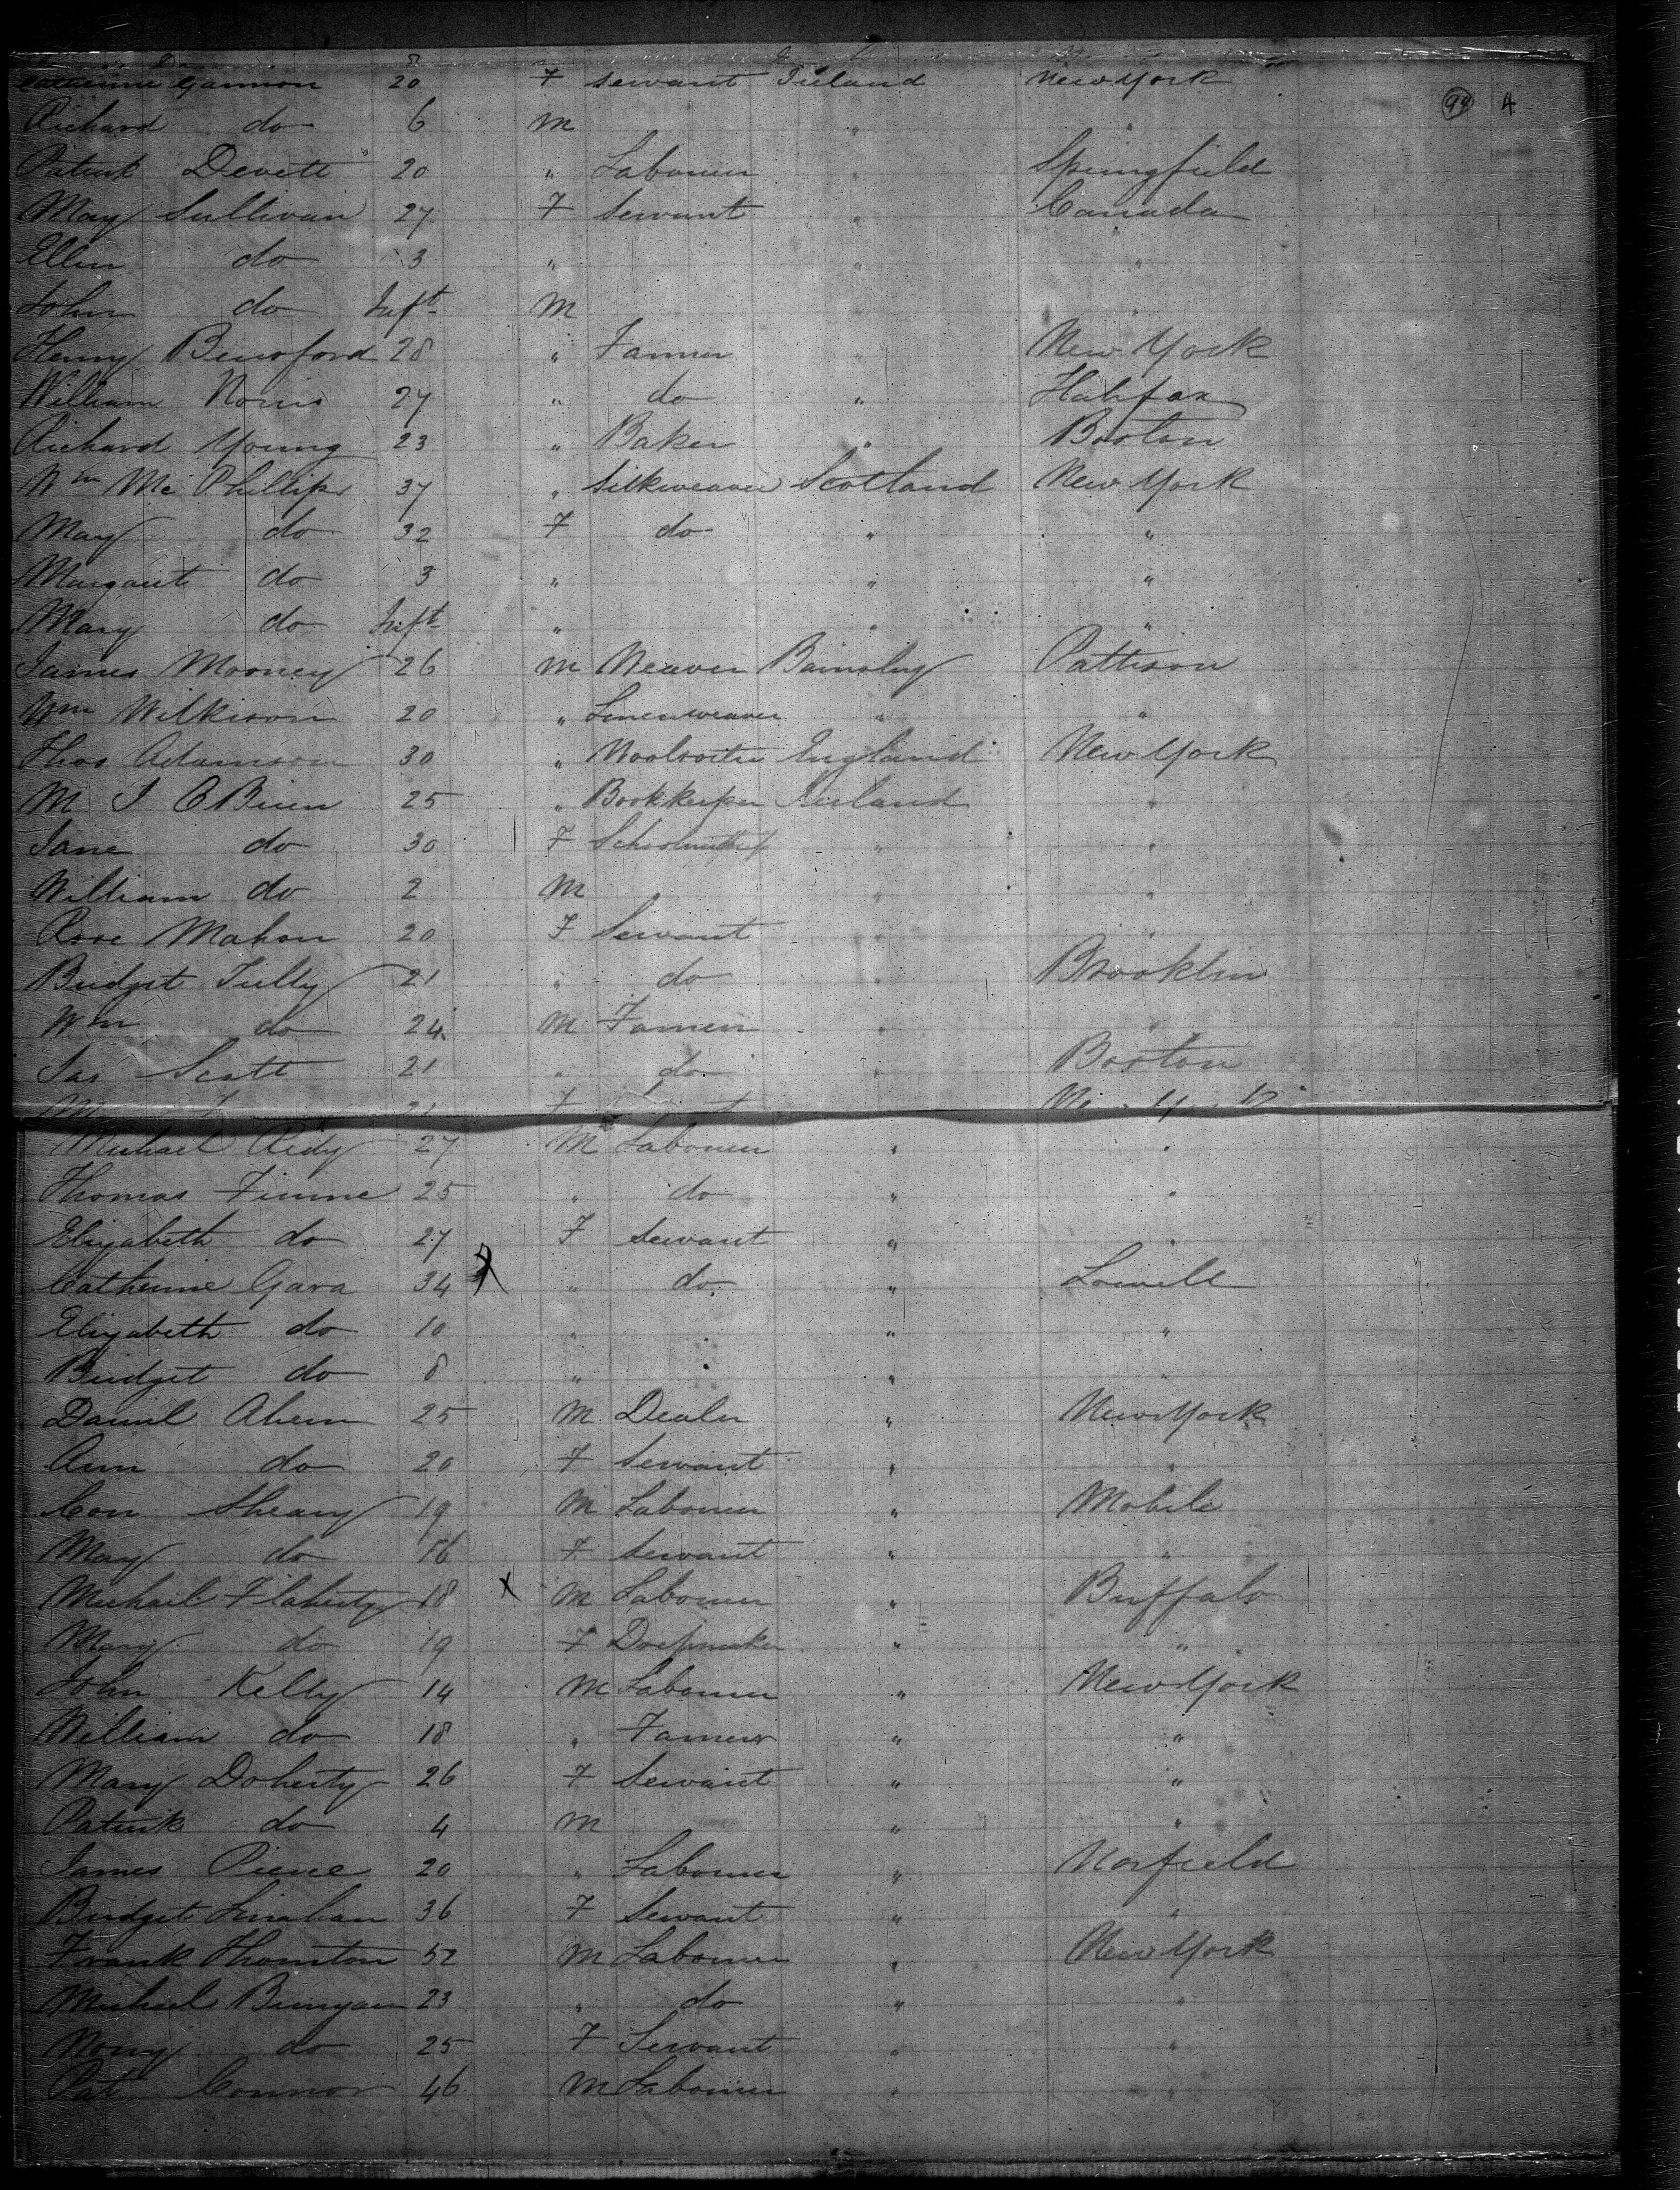 Catherine Gannon 20 F Servant Ireland New York
(94) 4
Richard do 6 M "
Patrick Devett 20 " Labourer " Springfield
Mary Sullivan 27 F Servant " Canada
Ellen do 3 " " "
John do Inft M
Henry 28 " Farmer " New York
William Norris 27 " do " Halifax
Richard Young 23 " Baker " Boston
Wm Mc Phillips 37 " Silkweaver Scotland New York
Mary do 32 F do " "
Margaret do 3 " " "
Mary do Inft " " "
James Mooney 26 M Weaver Barnsley Pattison
Wm Wilkison 20 " Linenweaver " "
Thos Adamson 30 " Woolsorter England New York
M J O Brien 25 " Bookkeeper Ireland "
Jane do 30 F " "
William do 2 M " "
Rose Mahon 20 F Servant " "
Bridget Tully 21 " do " Brooklin
Wm do 24 M Farmer " "
Jas Scott 21 " do " Boston
21 F New York
Michael Reidy 27 M Labourer " "
Thomas Finne 25 " do " "
Elizabeth do 27 F Servant " "
Catherine Gara 34 X " do " Lowell
Elizabeth do 10 " " "
Bridget do 8 " " "
Daniel Ahern 25 M Dealer " New York
Ann do 20 F Servant " "
Con Sheary 19 M Labourer " Mobile
Mary do 16 F Servant " "
Michael Flaherty 18 X M Labourer " Buffalo
Mary do 19 F Dressmaker " "
John Kelly 14 M Labourer " New York
William do 18 " Farmer " "
Mary Doherty 26 F Servant " "
Patrick do 4 M " "
James Pierce 20 " Labourer " Norfield
Bridget Linahan 36 F Servant " "
Frank Thornton 52 M Labourer " New York
Michael Bunyan 23 " do " "
Nony do 25 F Servant " "
Pat Connor 46 M Labourer " "